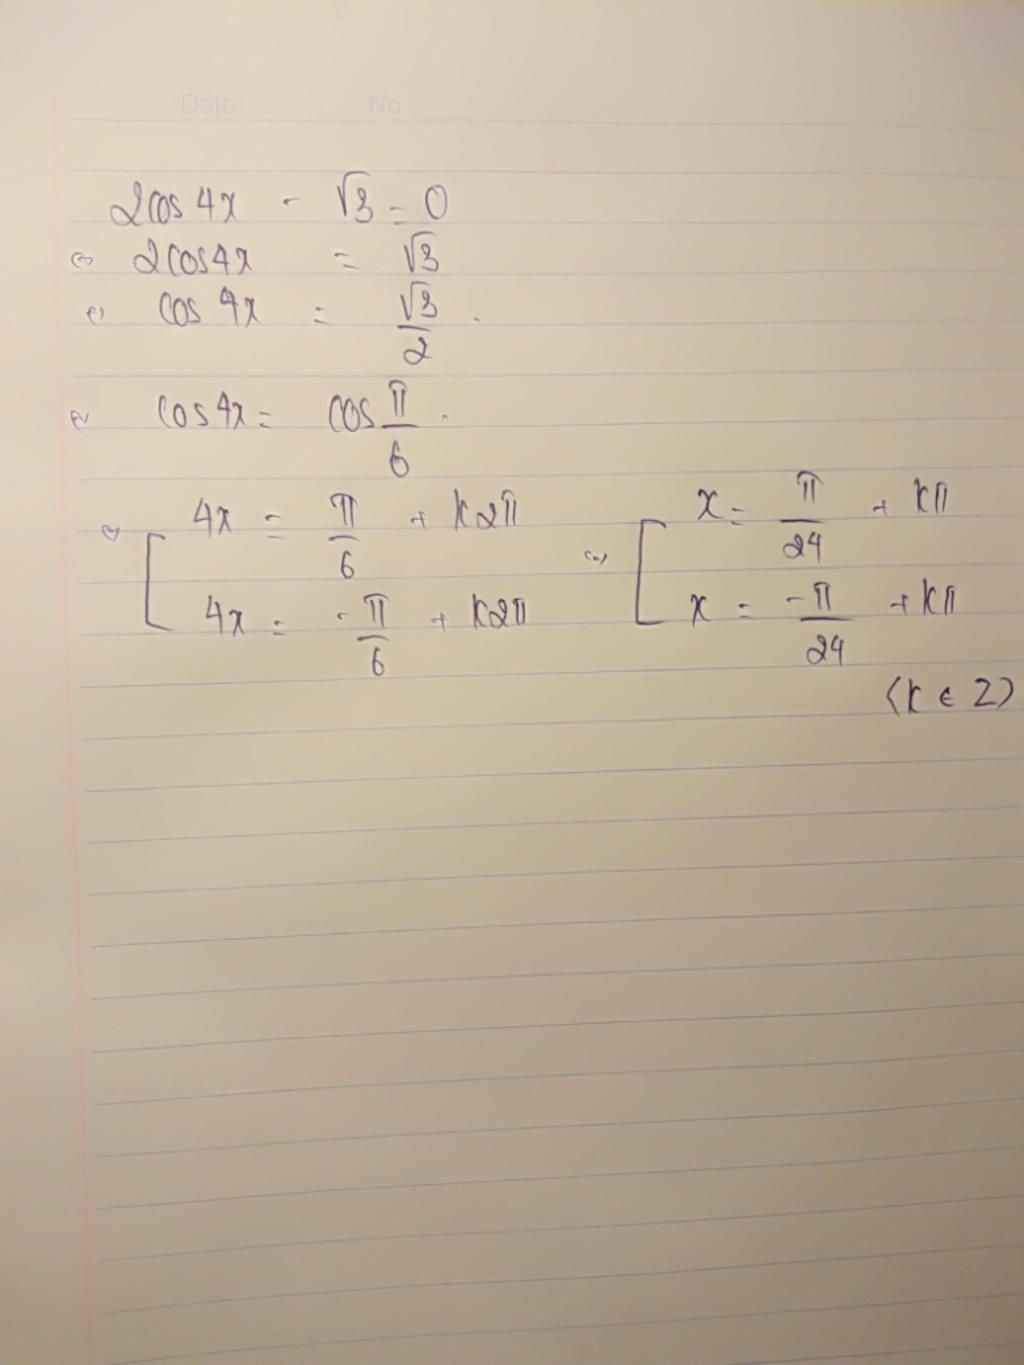 Date No.
2cos 4x - √3 = 0
⇔ 2cos4x = √3
⇔ cos 4x = √3/2.
⇔ cos4x = cos π/6.
⇔ [ 4x = π/6 + k2π ⇔ [ x = π/24 + kπ
4x = -π/6 + k2π x = -π/24 + kπ
(k ∈ Z)